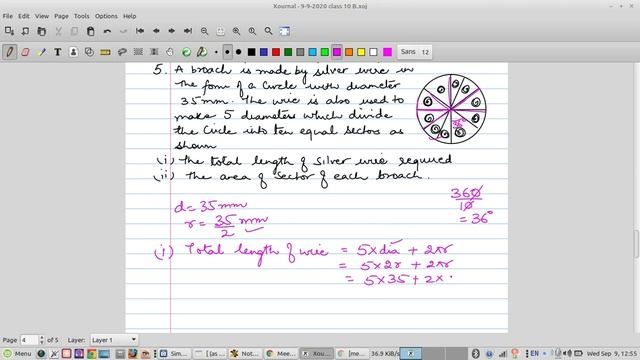 Xournal - 9-9-2020 class 10 B.xoj
File Edit View Journal Tools Options Help
Sans 12
5. A broach is made by silver wire in
the form of a circle with diameter
35mm. The wire is also used to
make 5 diameters which divide
the circle into ten equal sectors as
shown
(i) The total length of silver wire required
(ii) The area of sector of each broach.
360/10
= 36°
d = 35mm
r = 35/2 mm
(i) Total length of wire = 5 x dia + 2πr
= 5 x 2r + 2πr
= 5 x 35 + 2 x
Page 4 of 5 Layer: Layer 1
Sim... [(as Not... Xour... [me... 36.9 KiB/s EN Wed Sep 9, 12:55